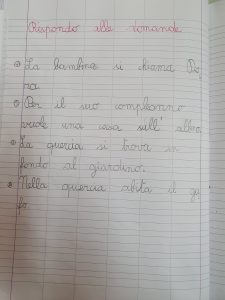 Rispondo alle domande
La bambina si chiama Do
ra
Per il suo compleanno
vuole una casa sull' albero
La quercia si trova in
fondo al giardino.
Nella quercia abita il gu
fo.